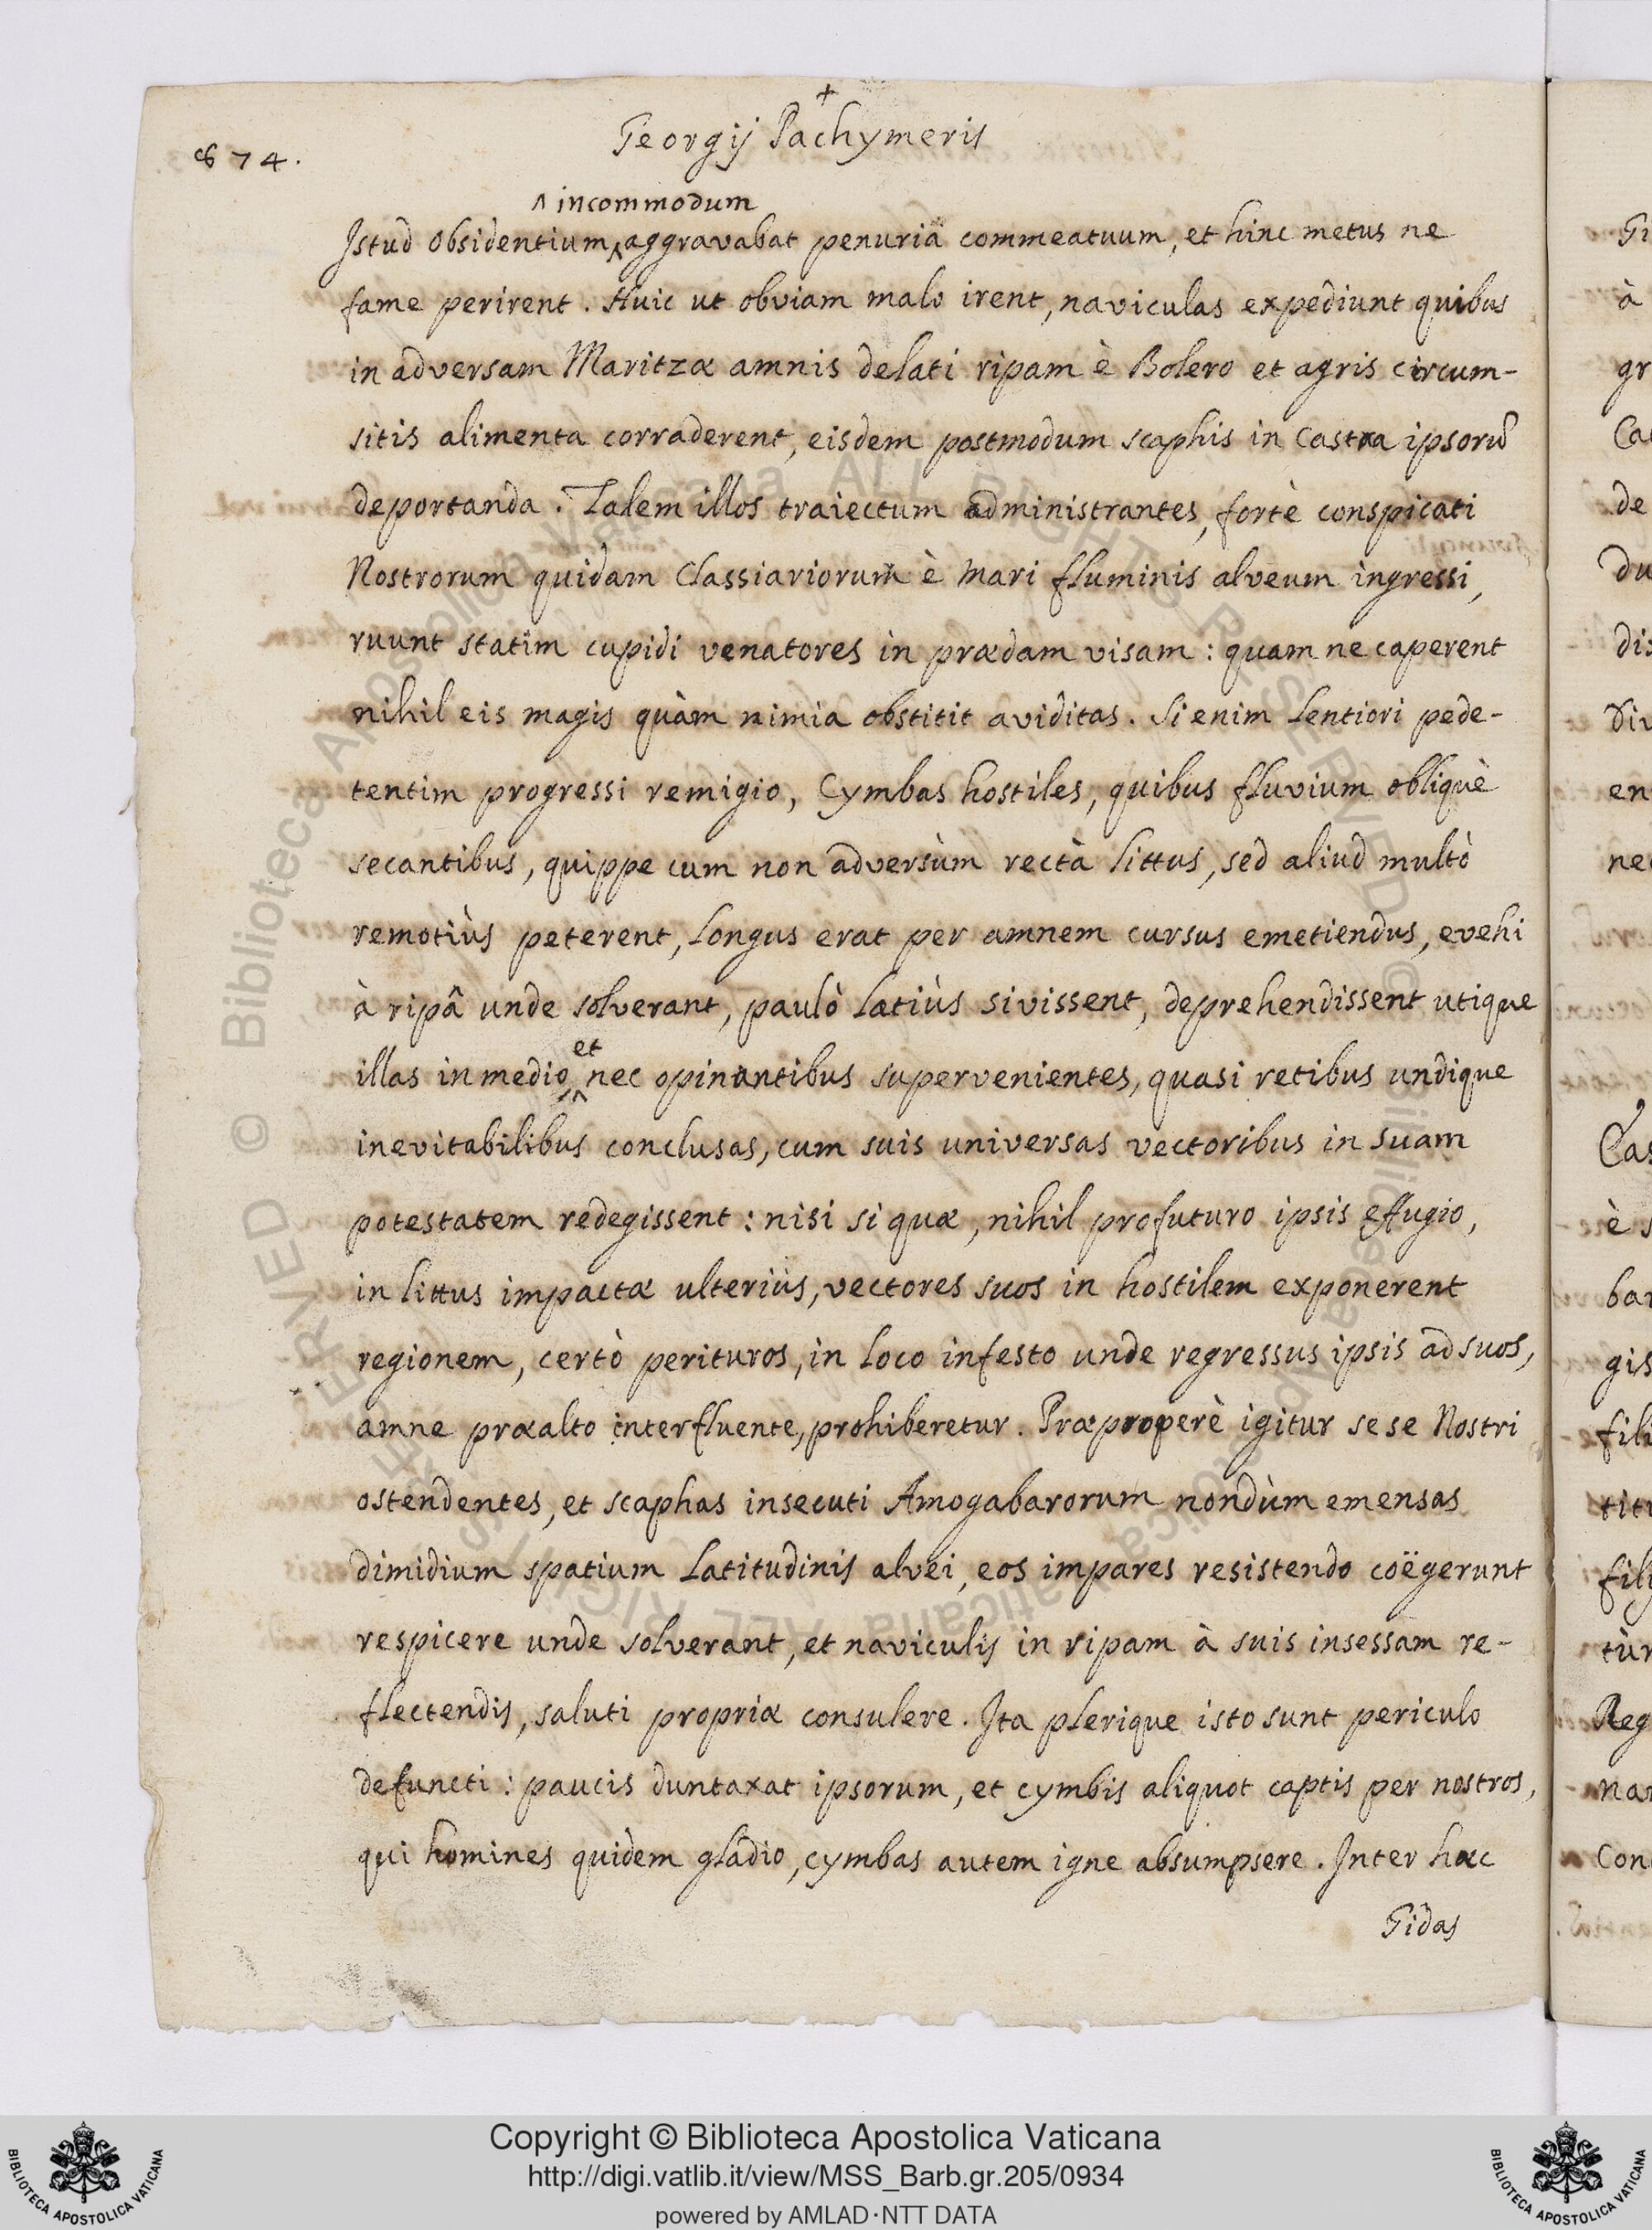 +
874.
Georgij Pachymeris
^ incommodum
Istud obsidentium^aggravabat penuria commeatuum, et hinc metus ne
fame perirent. Huic ut obviam malo irent, naviculas expediunt quibus
in adversam Maritzæ amnis delati ripam è Bolero et agris circum-
sitis alimenta corraderent, eisdem postmodum scaphis in Castra ipsorũ
deportanda. Talem illos traiectum administrantes, fortè conspicati
Nostrorum quidam Classiariorum è mari fluminis alveum ingressi,
ruunt statim cupidi venatores in prædam visam : quam ne caperent
nihil eis magis quàm nimia obstitit aviditas. Si enim lentiori pede-
tentim progressi remigio, Cymbas hostiles, quibus fluvium obliquè
secantibus, quippe cum non adversùm rectà littus, sed aliud multò
remotiùs peterent, longus erat per amnem cursus emetiendus, evehi
à ripâ unde solverant, paulò latiùs sivissent, deprehendissent utique
et
illas in medio,^nec opinantibus supervenientes, quasi retibus undique
inevitabilibus conclusas, cum suis universas vectoribus in suam
potestatem redegissent : nisi si quæ, nihil profuturo ipsis effugio,
in littus impactæ ulteriùs, vectores suos in hostilem exponerent
regionem, certò perituros, in loco infesto unde regressus ipsis ad suos,
amne præalto interfluente, prohiberetur. Præproperè igitur sese Nostri
ostendentes, et scaphas insecuti Amogabarorum nondùm emensas
dimidium spatium latitudinis alvei, eos impares resistendo coëgerunt
respicere unde solverant, et naviculis in ripam à suis insessam re-
flectendis, saluti propriæ consulere. Ita plerique isto sunt periculo
defuncti : paucis duntaxat ipsorum, et cymbis aliquot captis per nostros,
qui homines quidem gladio, cymbas autem igne absumpsere. Inter hæc
Gidas
Copyright © Biblioteca Apostolica Vaticana
http://digi.vatlib.it/view/MSS_Barb.gr.205/0934
powered by AMLAD·NTT DATA
BIBLIOTECA APOSTOLICA VATICANA
BIBLIOTECA APOSTOLICA VATICANA